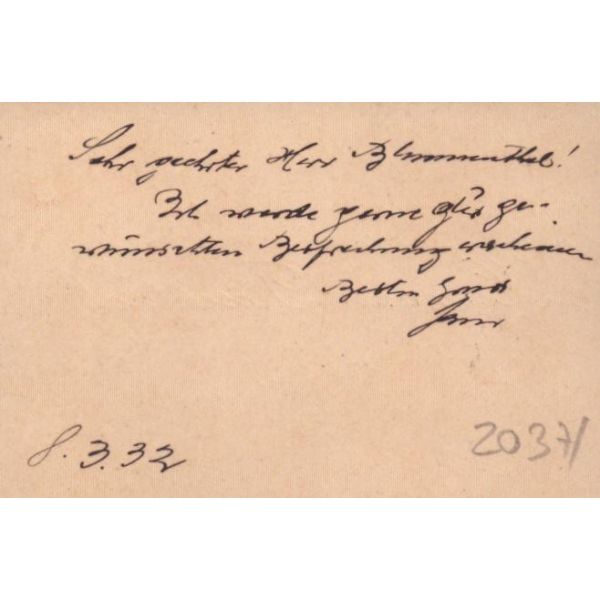 Sehr geehrter Herr Blumenthal!
Ich werde gerne zur ge-
wünschten Besprechung erscheinen
Besten Gruss
8.3.32
2037/